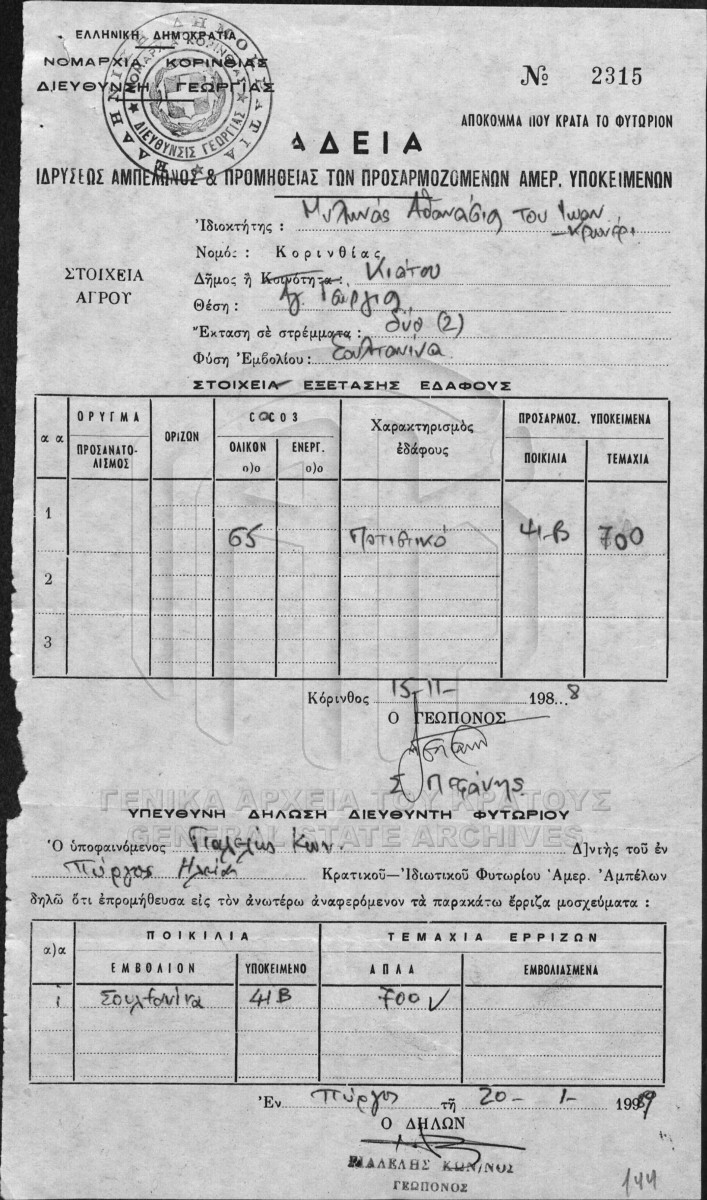 ΕΛΛΗΝΙΚΗ ΔΗΜΟΚΡΑΤΙΑ
ΝΟΜΑΡΧΙΑ ΚΟΡΙΝΘΙΑΣ
ΔΙΕΥΘΥΝΣΗ ΓΕΩΡΓΙΑΣ
ΕΛΛΗΝΙΚΗ ΔΗΜΟΚΡΑΤΙΑ
ΝΟΜΑΡΧΙΑ ΚΟΡΙΝΘΙΑΣ
ΔΙΕΥΘΥΝΣΙΣ ΓΕΩΡΓΙΑΣ
Nº 2315
ΑΠΟΚΟΜΜΑ ΠΟΥ ΚΡΑΤΑ ΤΟ ΦΥΤΩΡΙΟΝ
ΑΔΕΙΑ
ΙΔΡΥΣΕΩΣ ΑΜΠΕΛΩΝΟΣ & ΠΡΟΜΗΘΕΙΑΣ ΤΩΝ ΠΡΟΣΑΡΜΟΖΟΜΕΝΩΝ ΑΜΕΡ. ΥΠΟΚΕΙΜΕΝΩΝ
ΣΤΟΙΧΕΙΑ ΑΓΡΟΥ
Ἰδιοκτήτης : Μυλωνάς Αθανάσιος του Ιωαν
Νομός : Κορινθίας
Δῆμος ἢ Κοινότητα : Κιάτου
Θέση : Αγ. Γεώργιος
Ἔκταση σὲ στρέμματα : δύο (2)
Φύση Ἐμβολίου : Σουλτανίνα
ΣΤΟΙΧΕΙΑ ΕΞΕΤΑΣΗΣ ΕΔΑΦΟΥΣ
α α ΟΡΥΓΜΑ ΠΡΟΣΑΝΑΤΟ- ΛΙΣΜΟΣ ΟΡΙΖΩΝ COCO3 Χαρακτηρισμὸς ἐδάφους ΠΡΟΣΑΡΜΟΖ. ΥΠΟΚΕΙΜΕΝΑ
ΟΛΙΚΟΝ ο)ο ΕΝΕΡΓ. ο)ο ΠΟΙΚΙΛΙΑ ΤΕΜΑΧΙΑ
1 65 Ποτιστικό 41-Β 700
2
3
Κόρινθος 15-11- 198...8
Ο ΓΕΩΠΟΝΟΣ
ΓΕΝΙΚΑ ΑΡΧΕΙΑ ΤΟΥ ΚΡΑΤΟΥΣ
GENERAL STATE ARCHIVES
ΥΠΕΥΘΥΝΗ ΔΗΛΩΣΗ ΔΙΕΥΘΥΝΤΗ ΦΥΤΩΡΙΟΥ
Ὁ ὑποφαινόμενος Γιαλελής Κων. Δ)ντὴς τοῦ ἐν
Πύργος Ηλείας Κρατικοῦ—Ἰδιωτικοῦ Φυτωρίου Ἀμερ. Ἀμπέλων
δηλῶ ὅτι ἐπρομήθευσα εἰς τὸν ἀνωτέρω ἀναφερόμενον τὰ παρακάτω ἔρριζα μοσχεύματα :
α)α ΠΟΙΚΙΛΙΑ ΤΕΜΑΧΙΑ ΕΡΡΙΖΩΝ
ΕΜΒΟΛΙΟΝ ΥΠΟΚΕΙΜΕΝΟ ΑΠΛΑ ΕΜΒΟΛΙΑΣΜΕΝΑ
1 Σουλτανίνα 41Β 700
Ἐν Πύργος τῇ 20-1-1989
Ο ΔΗΛΩΝ
ΓΙΑΛΕΛΗΣ ΚΩΝ/ΝΟΣ
ΓΕΩΠΟΝΟΣ
144